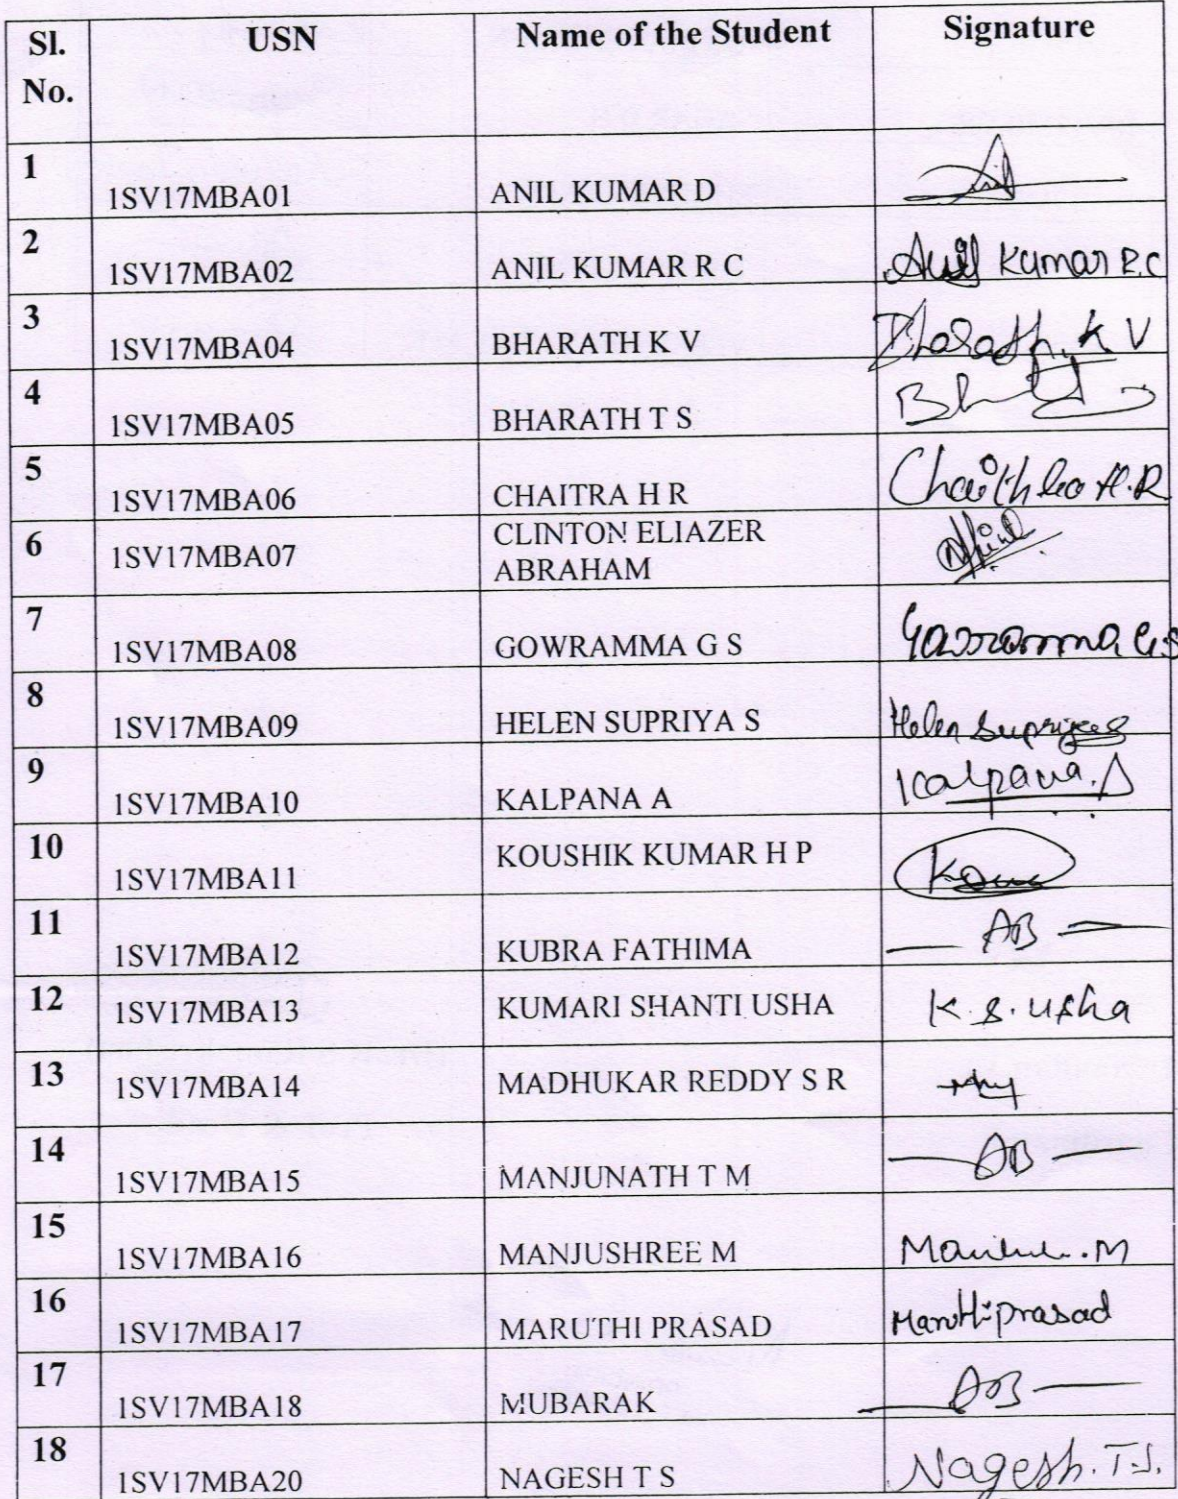 Sl. No. USN Name of the Student Signature
1 1SV17MBA01 ANIL KUMAR D
2 1SV17MBA02 ANIL KUMAR R C Anil Kumar R.C
3 1SV17MBA04 BHARATH K V Bharath. K V
4 1SV17MBA05 BHARATH T S
5 1SV17MBA06 CHAITRA H R H.R
6 1SV17MBA07 CLINTON ELIAZER
ABRAHAM
7 1SV17MBA08 GOWRAMMA G S Gowramma G.S
8 1SV17MBA09 HELEN SUPRIYA S Helen Supriya S
9 1SV17MBA10 KALPANA A Kalpana. A
10 1SV17MBA11 KOUSHIK KUMAR H P
11 1SV17MBA12 KUBRA FATHIMA — AB —
12 1SV17MBA13 KUMARI SHANTI USHA K. S. Usha
13 1SV17MBA14 MADHUKAR REDDY S R
14 1SV17MBA15 MANJUNATH T M — AB —
15 1SV17MBA16 MANJUSHREE M
16 1SV17MBA17 MARUTHI PRASAD Maruthi prasad
17 1SV17MBA18 MUBARAK — AB —
18 1SV17MBA20 NAGESH T S Nagesh. T.S.